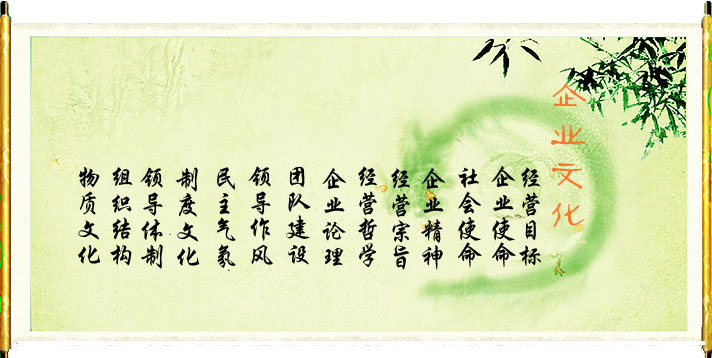 企业文化
经营目标
企业使命
社会使命
企业精神
经营宗旨
经营哲学
企业论理
团队建设
领导作风
民主气氛
制度文化
领导体制
组织结构
物质文化